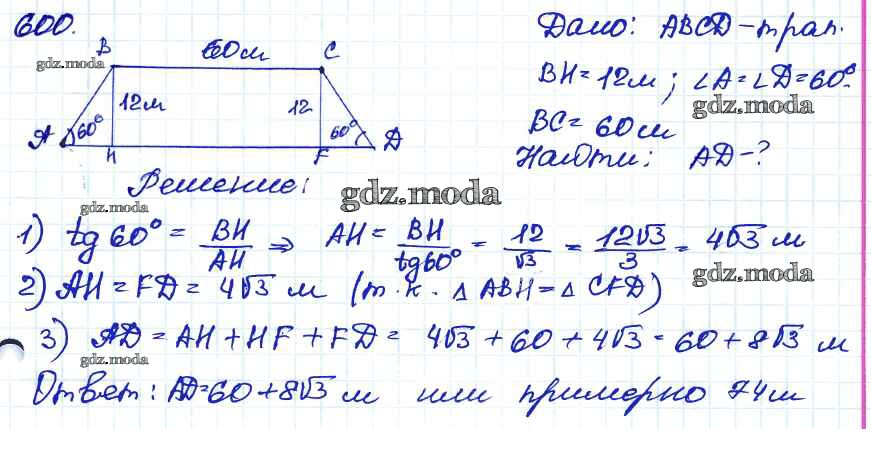 600.
Дано: ABCD - трап.
B 60м C
gdz.moda
BH = 12м; ∠A = ∠D = 60°.
12м 12
gdz.moda
A 60° 60° D
BC = 60м
H F
Найти: AD - ?
Решение:
gdz.moda
gdz.moda
1) tg 60° = BH/AH ⇒ AH = BH/tg60° = 12/√3 = 12√3/3 = 4√3 м
gdz.moda
2) AH = FD = 4√3 м (т.к. △ ABH = △ CFD)
3) AD = AH + HF + FD = 4√3 + 60 + 4√3 = 60 + 8√3 м
gdz.moda
Ответ: AD = 60 + 8√3 м или примерно 74м